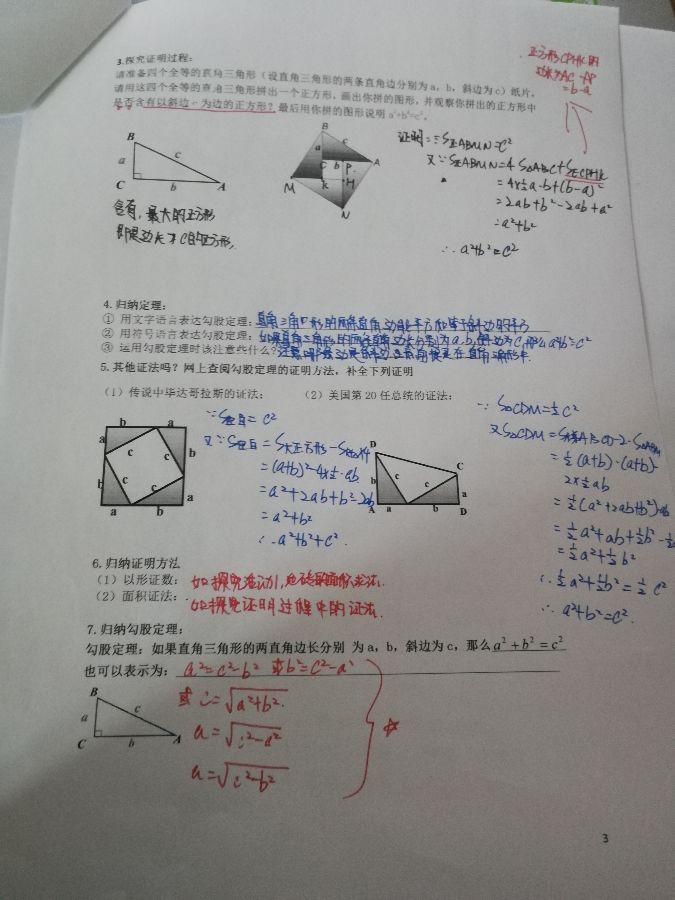 3.探究证明过程:
请准备四个全等的直角三角形(设直角三角形的两条直角边分别为a,b,斜边为c)纸片,
请用这四个全等的直角三角形拼出一个正方形,画出你拼的图形,并观察你拼出的正方形中
是否含有以斜边c为边的正方形?最后用你拼的图形说明a²+b²=c²。
正方形CPHK的
边长为AC-AP
=b-a
B
a
c
C
b
A
B
a
c
C
b
P
A
M
K
H
N
含有,最大的正方形
即是边长为C的正方形.
证明:∵S正ABMN=c²
又∵S正ABMN=4S△ABC+S正CPHK
=4×½a·b+(b-a)²
=2ab+b²-2ab+a²
=a²+b²
∴a²+b²=c²
4.归纳定理:
① 用文字语言表达勾股定理:直角三角形的两条直角边的平方和等于斜边的平方
② 用符号语言表达勾股定理:如果直角三角形的两条直角边长分别为a,b,斜边为c,那么a²+b²=c²
③ 运用勾股定理时该注意些什么?
5.其他证法吗?网上查阅勾股定理的证明方法,补全下列证明
(1)传说中毕达哥拉斯的证法:
(2)美国第20任总统的证法:
b
a
a
c
c
b
b
c
c
a
a
b
=c²
=(a+b)²-4×½·ab
=a²+2ab+b²-2ab
=a²+b²
∴a²+b²+c²
D
C
b
c
c
a
A
a
b
D
∵S△CDM=½c²
又S△CDM=S梯ABCD-2·S△ADM
=½(a+b)·(a+b)-
2×½ab
=½(a²+2ab+b²)-ab
=½a²+ab+½b²-½
=½a²+½b²
∴½a²+½b²=½c²
∴a²+b²=c²
6.归纳证明方法
(1)以形证数:如探究活动1,地砖的面积求法.
(2)面积证法:如探究证明过程中的证法.
7.归纳勾股定理:
勾股定理:如果直角三角形的两直角边长分别 为a,b,斜边为c,那么a²+b²=c²
也可以表示为:a²=c²-b² 或b²=c²-a²
或c=√a²+b²
a=√c²-a²
a=√c²-b²
B
a
c
C
b
A
3